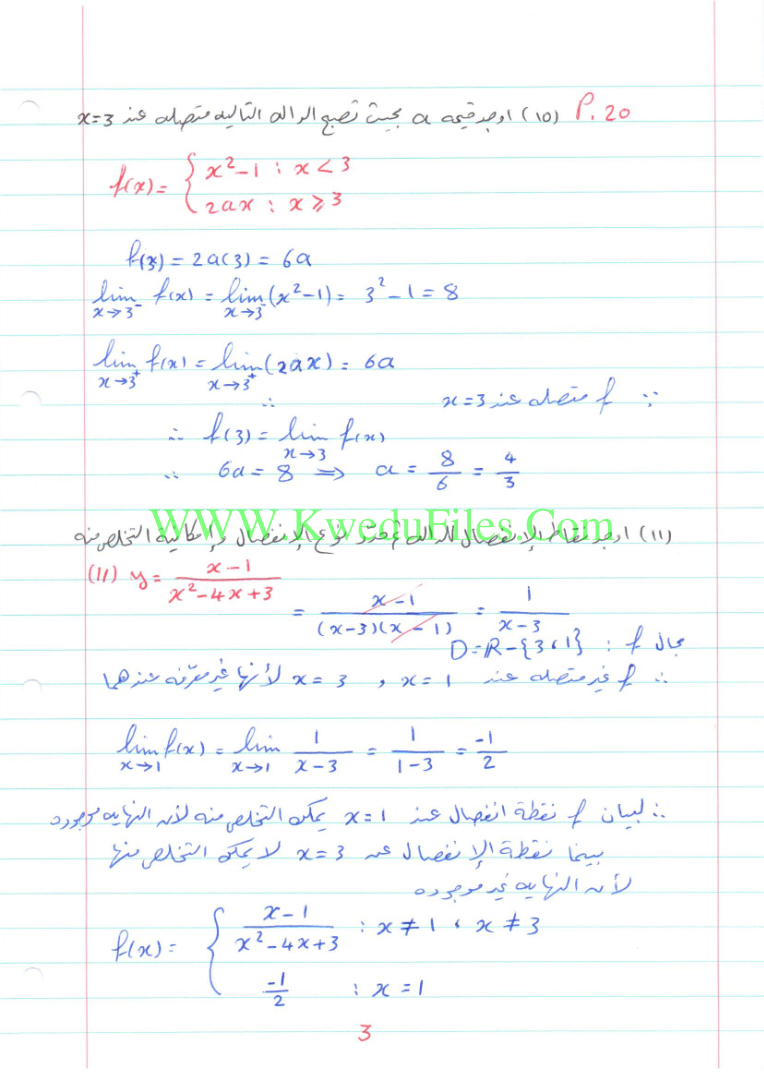 P. 20 (١٥) اوجد قيمة a بحيث تصبح الداله التاليه متصله عند x=3
f(x) = { x²-1 : x < 3
2ax : x ⩾ 3
f(3) = 2a(3) = 6a
lim x→3⁻ f(x) = lim x→3⁻ (x²-1) = 3²-1 = 8
lim x→3⁺ f(x) = lim x→3⁺ (2ax) = 6a
∵ f متصله عند x=3 ∴
∴ f(3) = lim x→3 f(x)
∴ 6a = 8 ⟹ a = 8/6 = 4/3
WWW.KweduFiles.Com
(١١) اوجد نقاط الإنفصال للداله ثم حدد نوع الإنفصال وإمكانية التخلص منه
(11) y = (x-1)/(x²-4x+3)
= (x-1)/((x-3)(x-1)) = 1/(x-3)
مجال f : D=R-{3،1}
∴ f غير متصله عند x=1 , x=3 لأنها غير معرفه عندهما
lim x→1 f(x) = lim x→1 1/(x-3) = 1/(1-3) = -1/2
∴ لبيان f نقطة انفصال عند x=1 يمكن التخلص منه لأن النهايه موجوده
بينما نقطة الإنفصال عند x=3 لا يمكن التخلص منها
لأن النهايه غير موجوده
f(x) = { (x-1)/(x²-4x+3) : x ≠ 1 ، x ≠ 3
-1/2 : x = 1
3